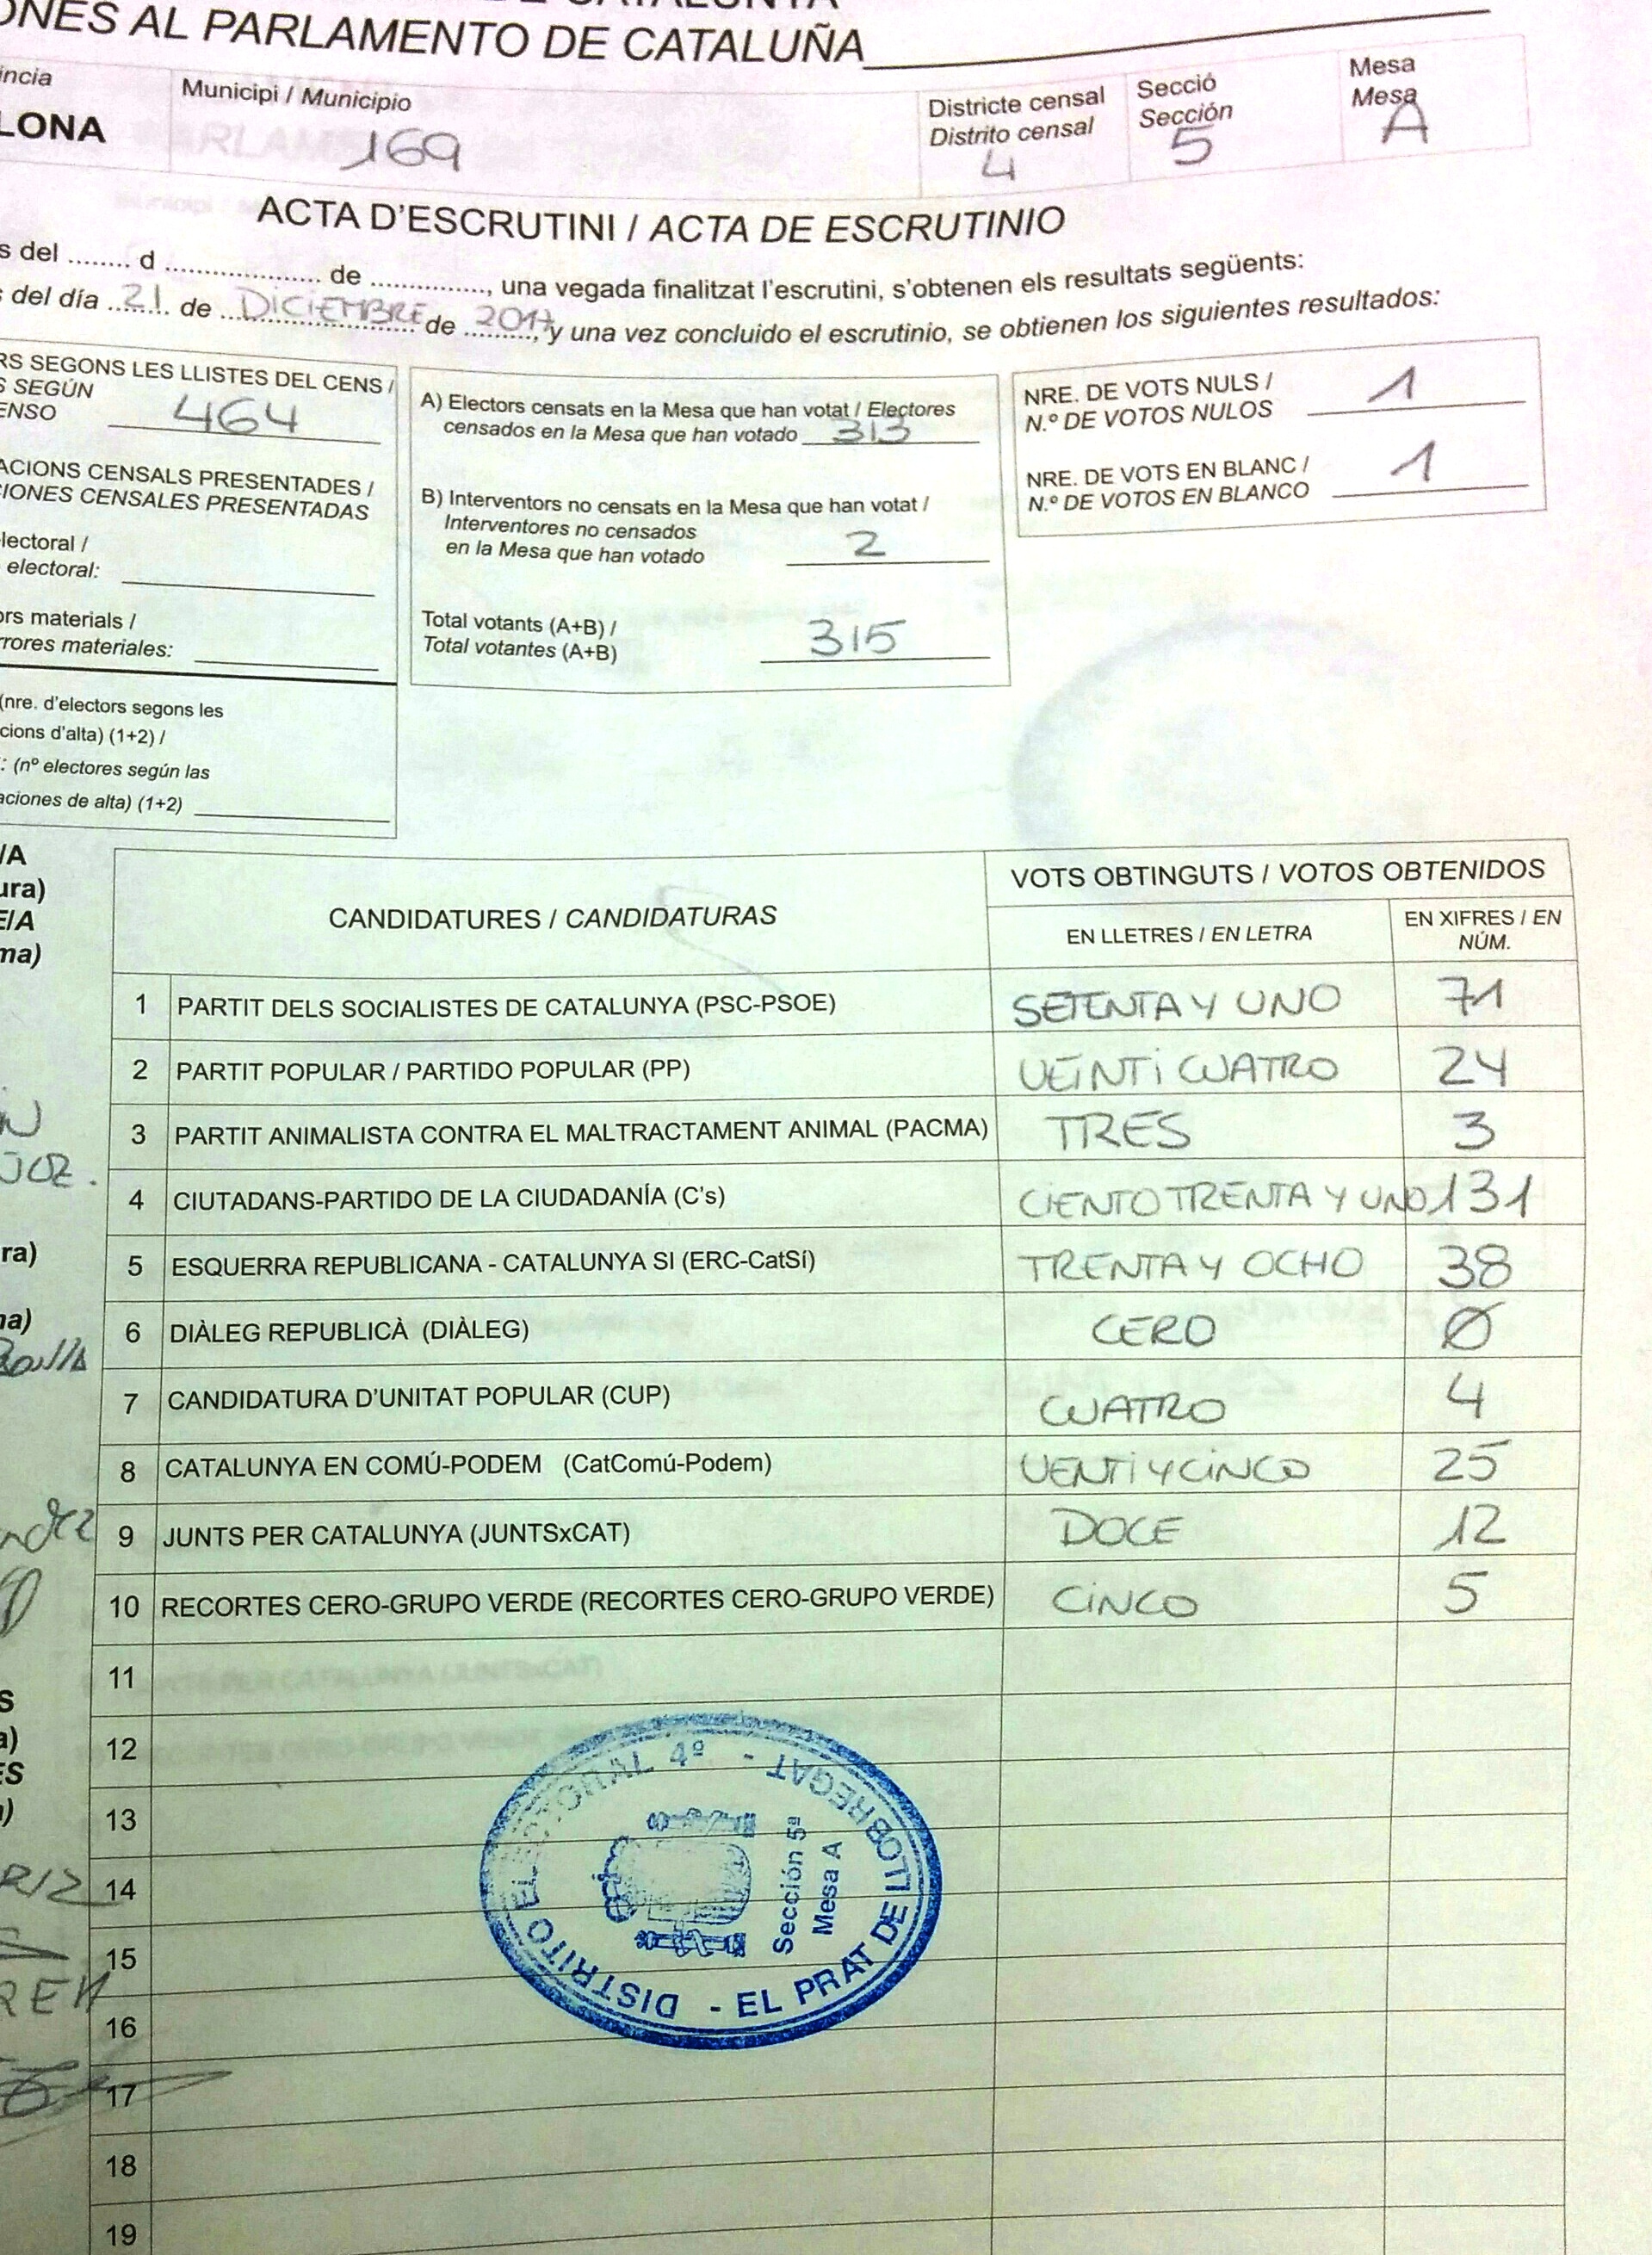 DE CATALUNYA
ONES AL PARLAMENTO DE CATALUÑA
incia
LONA
Municipi / Municipio
169
Districte censal
Distrito censal
4
Secció
Sección
5
Mesa
Mesa
A
ACTA D'ESCRUTINI / ACTA DE ESCRUTINIO
s del ........ d ...................... de ................, una vegada finalitzat l'escrutini, s'obtenen els resultats següents:
s del día 21 de DICIEMBRE de 2017, y una vez concluido el escrutinio, se obtienen los siguientes resultados:
RS SEGONS LES LLISTES DEL CENS /
S SEGÚN
ENSO 464
ACIONS CENSALS PRESENTADES /
IONES CENSALES PRESENTADAS
lectoral /
electoral:
ors materials /
rrores materiales:
(nre. d'electors segons les
cions d'alta) (1+2) /
: (nº electores según las
aciones de alta) (1+2)
A) Electors censats en la Mesa que han votat / Electores
censados en la Mesa que han votado 313
B) Interventors no censats en la Mesa que han votat /
Interventores no censados
en la Mesa que han votado 2
Total votants (A+B) /
Total votantes (A+B) 315
NRE. DE VOTS NULS /
N.º DE VOTOS NULOS 1
NRE. DE VOTS EN BLANC /
N.º DE VOTOS EN BLANCO 1
/A
ura)
E/A
ma)
ra)
na)
S
a)
ES
CANDIDATURES / CANDIDATURAS
VOTS OBTINGUTS / VOTOS OBTENIDOS
EN LLETRES / EN LETRA
EN XIFRES / EN
NÚM.
1 PARTIT DELS SOCIALISTES DE CATALUNYA (PSC-PSOE) SETENTA Y UNO 71
2 PARTIT POPULAR / PARTIDO POPULAR (PP) VEINTI CUATRO 24
3 PARTIT ANIMALISTA CONTRA EL MALTRACTAMENT ANIMAL (PACMA) TRES 3
4 CIUTADANS-PARTIDO DE LA CIUDADANÍA (C's) CIENTO TRENTA Y UNO 131
5 ESQUERRA REPUBLICANA - CATALUNYA SI (ERC-CatSí) TRENTA Y OCHO 38
6 DIÀLEG REPUBLICÀ (DIÀLEG) CERO Ø
7 CANDIDATURA D'UNITAT POPULAR (CUP) CUATRO 4
8 CATALUNYA EN COMÚ-PODEM (CatComú-Podem) VENTI Y CINCO 25
9 JUNTS PER CATALUNYA (JUNTSxCAT) DOCE 12
10 RECORTES CERO-GRUPO VERDE (RECORTES CERO-GRUPO VERDE) CINCO 5
11
12
13
14
15
16
17
18
19
DISTRITO ELECTORAL 4º - EL PRAT DE LLOBREGAT -
Sección 5ª
Mesa A